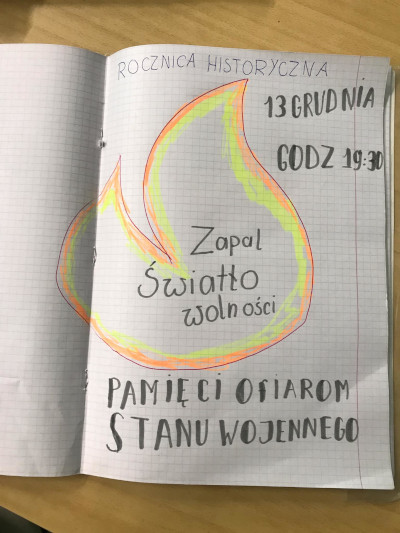 ROCZNICA HISTORYCZNA
13 GRUDNIA
GODZ 19:30
Zapal
Światło
wolności
PAMIĘCI OFIAROM
STANU WOJENNEGO